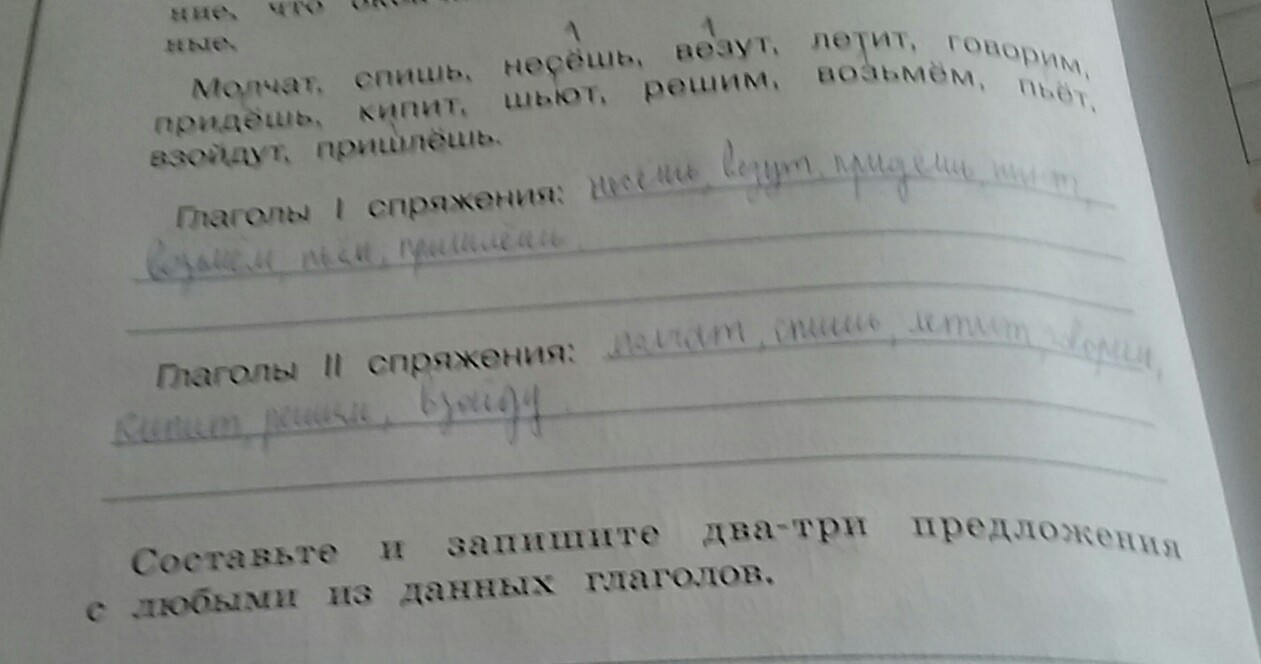 ние, что
ные.
Молчат, спишь, несёшь, везут, летит, говорим,
придёшь, кипит, шьют, решим, возьмём, пьёт,
взойдут, пришлёшь.
Глаголы I спряжения: несёшь, везут, придёшь, шьют,
возьмём, пьём, пришлёшь.
Глаголы II спряжения: молчат, спишь, летит, говорим,
кипит, решим, взойду
Составьте и запишите два-три предложения
с любыми из данных глаголов.